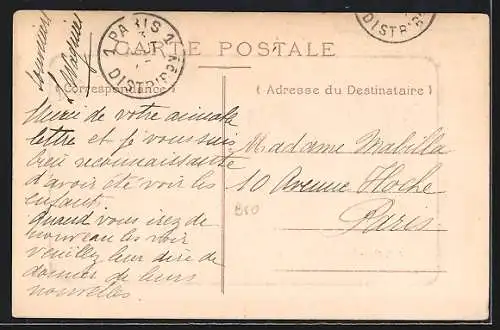 CARTE POSTALE
1 PARIS 1
DISTRIB
DISTRIB
(Correspondance)
(Adresse du Destinataire)
Merci de votre aimable
lettre et je vous suis
bien reconnaissante
d'avoir été voir les
enfants.
Quand vous irez de
nouveau les voir
veuillez leur dire de
donner de leurs
nouvelles.
Madame Mabilla
10 Avenue Hoche
Paris